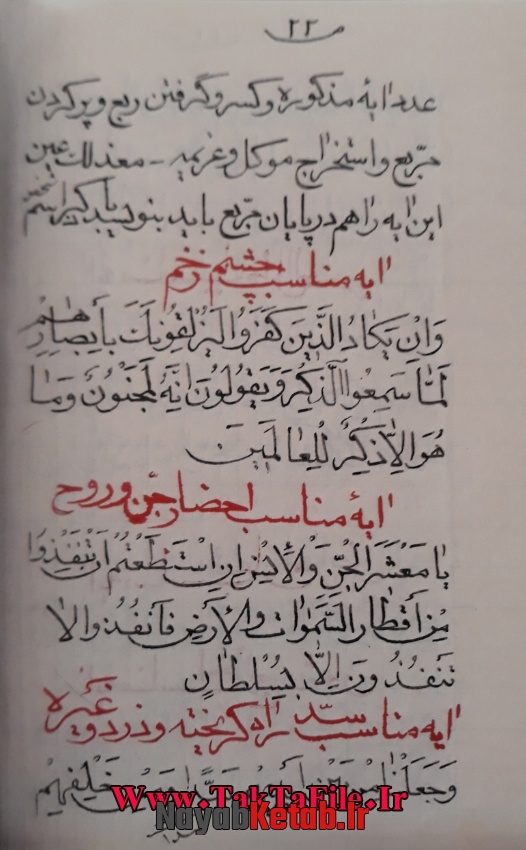 ۲۲
عدد ایهٔ مذکوره و کسر و گرفتن ربع و پر کردن
مربع و استخراج موکل و عزیمه - معذلك عین
این ایه را هم در پایان مربع باید بنویسید
ایه مناسب چشم زخم
وَاِنْ یَکَادُ الَّذینَ کَفَرُوا لَیُزْلِقُونَكَ بِاَبصارِهِم
لَمَّا سَمِعُوا الذِّکرَ وَ یَقُولُونَ اِنَّهُ لَمَجْنُونٌ وَمَا
هُوَ اِلاّ ذِکْرٌ لِلْعالَمینَ
ایهٔ مناسب احضار جن و روح
یا مَعْشَرَ الْجِنِّ وَالْاِنْسِ اِنِ اسْتَطَعْتُم اَنْ تَنْفُذُوا
مِنْ اَقْطارِ السَّمواتِ وَالاَرضِ فَانْفُذُوا لا
تَنْفُذُونَ اِلاّ بِسُلْطانٍ
ایه مناسب سدّ راه گریخته و دزد و غیره
وَجَعَلْنا مِنْ بَیْنِ خَلْفِهِم
Www.TakTaFile.Ir
NayabKetab.ir